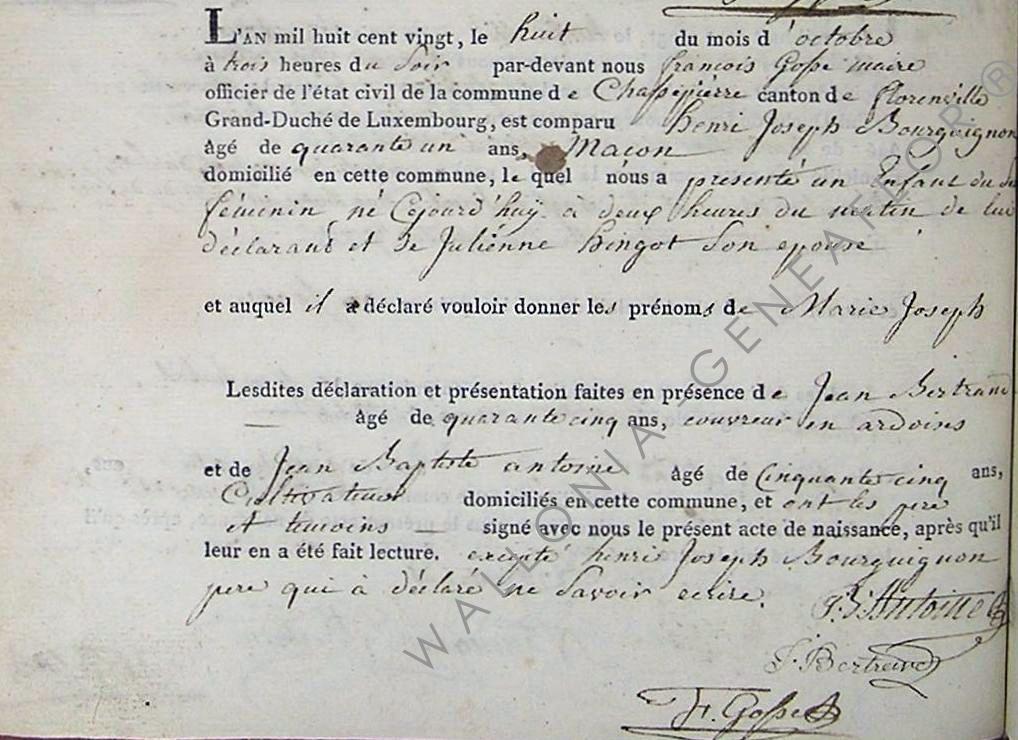 L'AN mil huit cent vingt, le huit du mois d'octobre
à trois heures du soir par-devant nous françois Gosse maire
officier de l'état civil de la commune de Chassepierre canton de florenville
Grand-Duché de Luxembourg, est comparu henri Joseph Bourguignon
âgé de quarante un ans, Maçon
domicilié en cette commune, le quel nous a presenté un Enfant du
féminin né Cejourd'huy à deux heures du matin de lui
déclarant et de Juliénne hingot Son epouse
et auquel il a déclaré vouloir donner les prénoms de Marie Joseph
Lesdites déclaration et présentation faites en présence de Jean Bertrand
âgé de quarante cinq ans, couvreur en ardoises
et de Jean Baptiste antoine âgé de Cinquante cinq ans,
Cultivateur domiciliés en cette commune, et ont les pere
et temoins signé avec nous le présent acte de naissance, après qu'il
leur en a été fait lecture. excepté henri Joseph Bourguignon
pere qui à déclaré ne Savoir ecrire.
J. B. Antoine
J. Bertrand
F. Gosse
WALLONIA GENEAFLOR ®